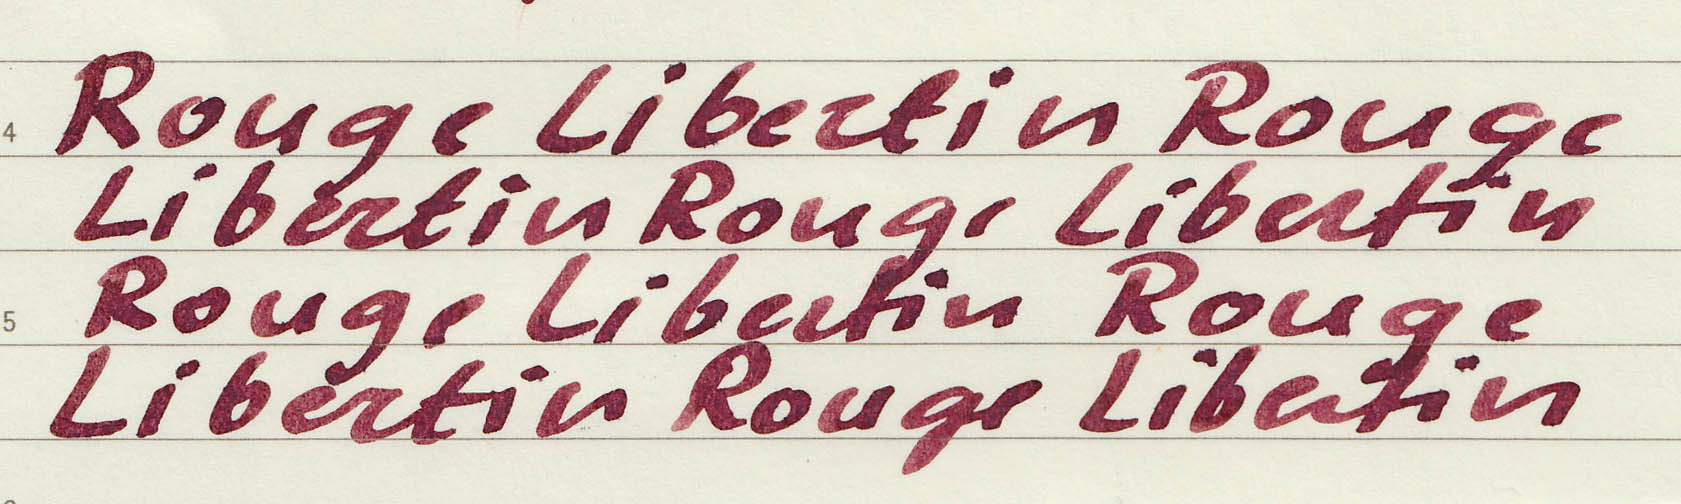 4 Rouge Libertin Rouge
Libertin Rouge Libertin
5 Rouge Libertin Rouge
Libertin Rouge Libertin